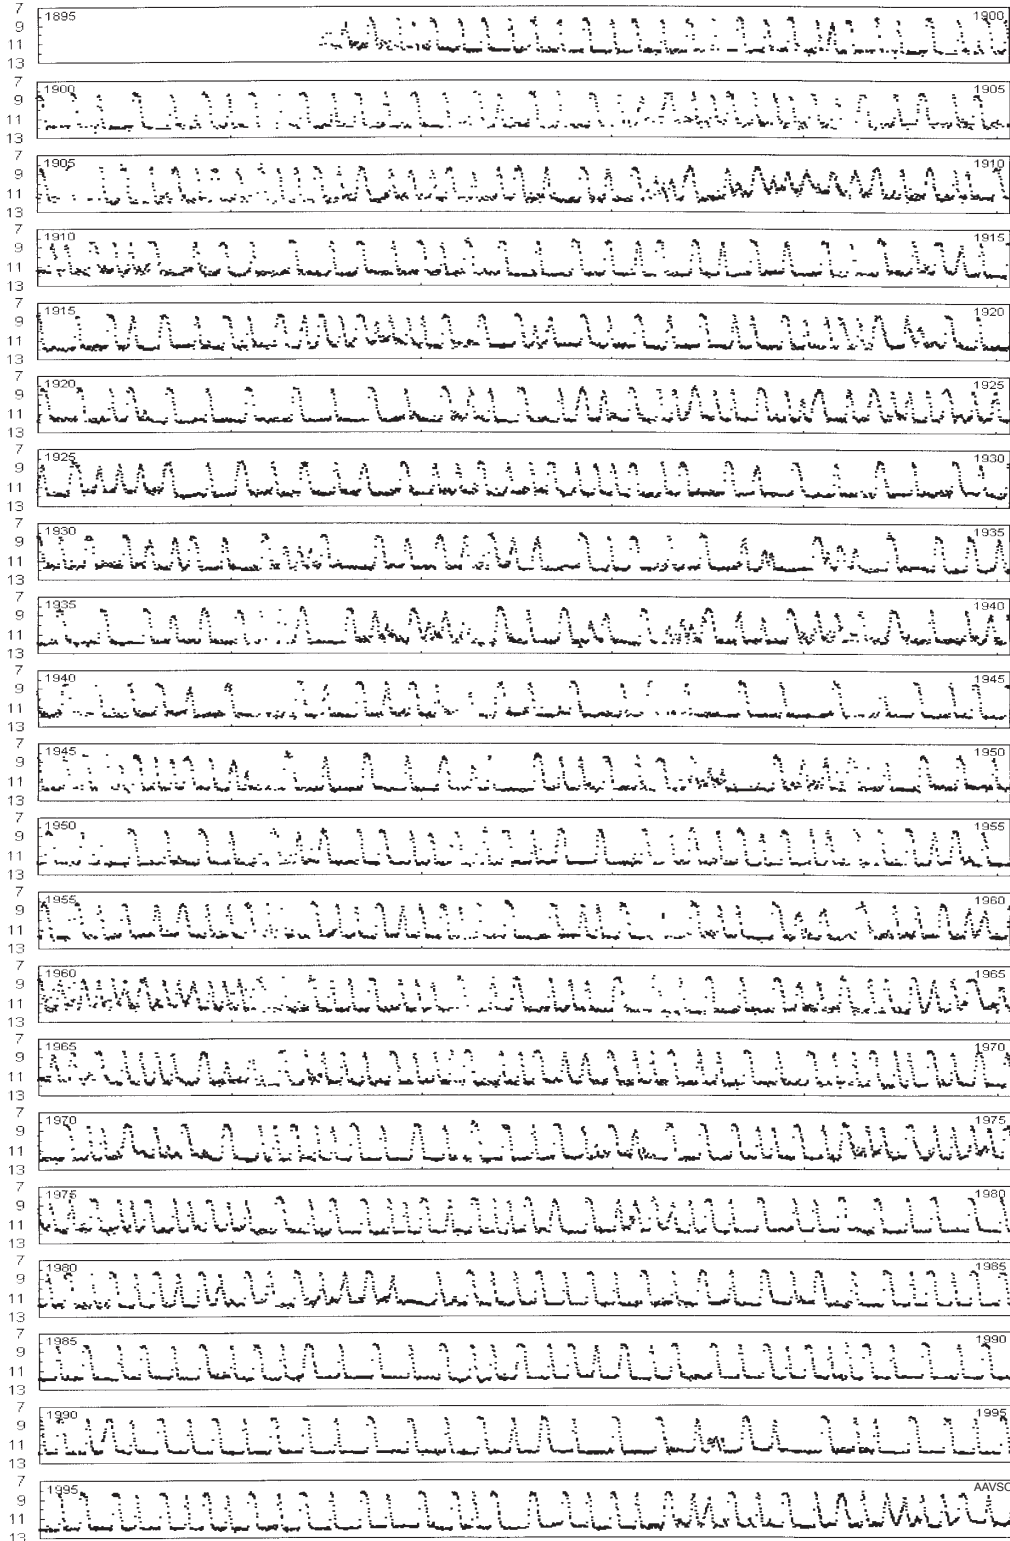 7
9
11
13
1895 1900
7
9
11
13
1900 1905
7
9
11
13
1905 1910
7
9
11
13
1910 1915
7
9
11
13
1915 1920
7
9
11
13
1920 1925
7
9
11
13
1925 1930
7
9
11
13
1930 1935
7
9
11
13
1935 1940
7
9
11
13
1940 1945
7
9
11
13
1945 1950
7
9
11
13
1950 1955
7
9
11
13
1955 1960
7
9
11
13
1960 1965
7
9
11
13
1965 1970
7
9
11
13
1970 1975
7
9
11
13
1975 1980
7
9
11
13
1980 1985
7
9
11
13
1985 1990
7
9
11
13
1990 1995
7
9
11
13
1995 AAVSO